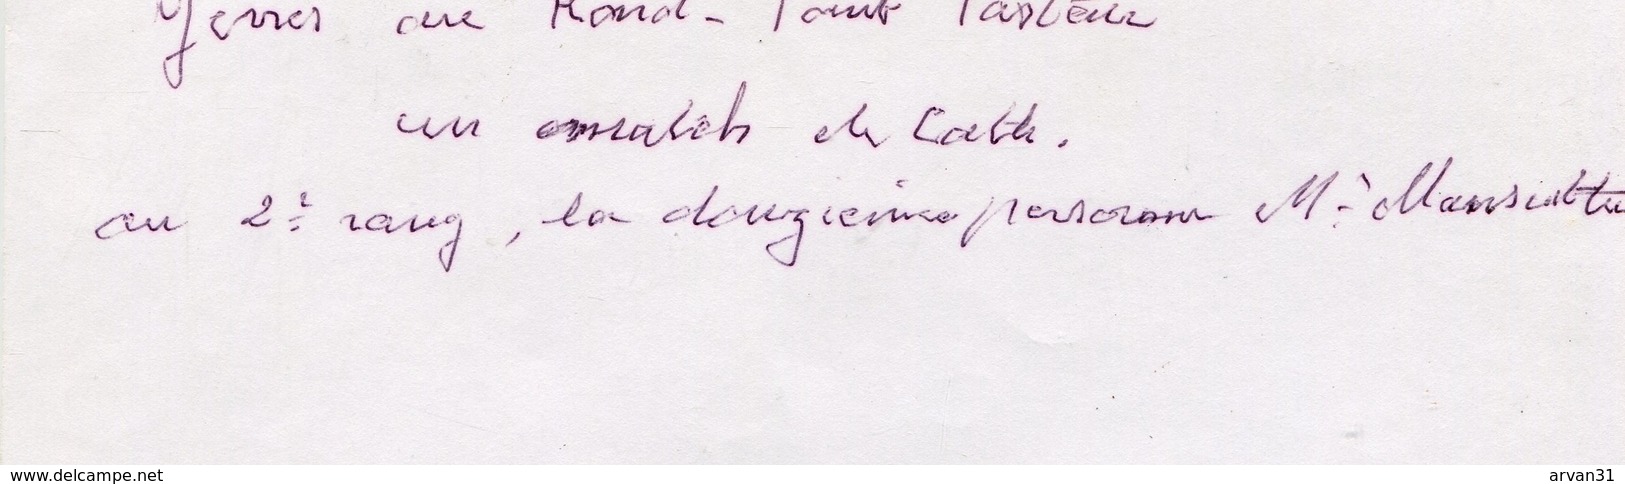 Yerres au Rond-Point Pasteur
un match de Catch.
au 2è rang, la douzième personne Mr
www.delcampe.net
arvan31